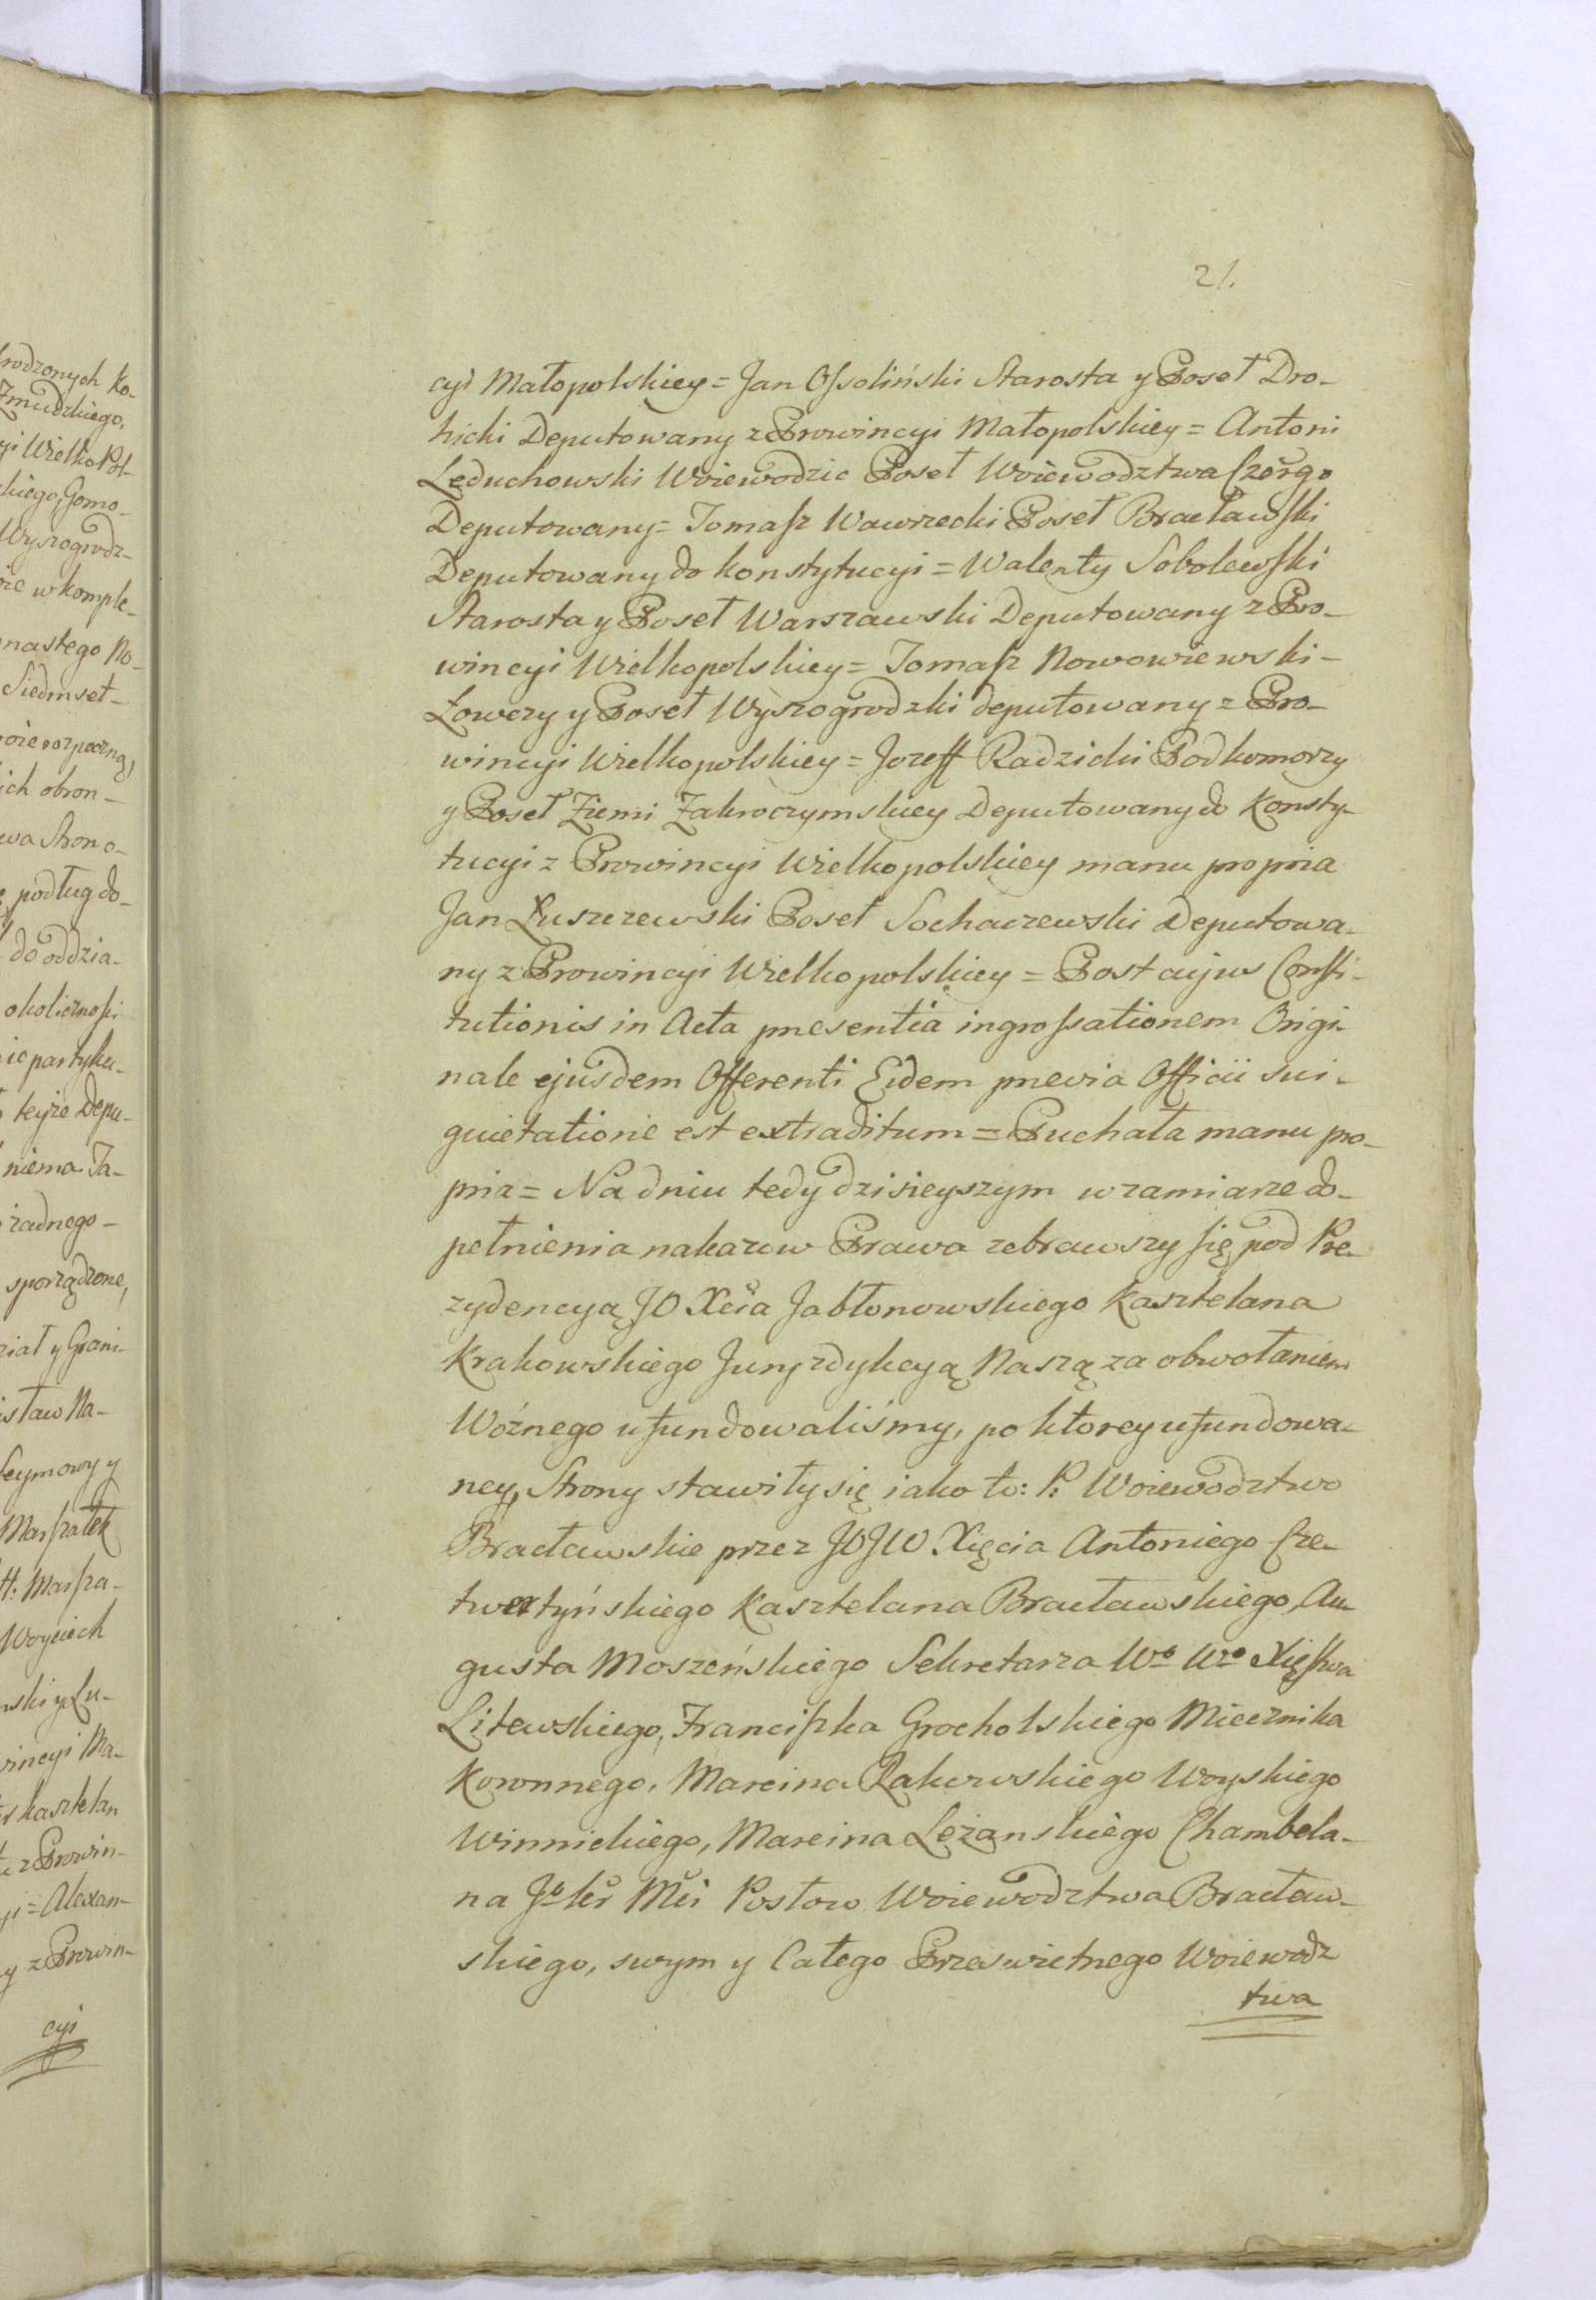 rodzonych Ko-
Zmudzkiego,
yi Wielko Pol-
skiego, Gomo-
Wyszogrodz-
w komple-
nastego No-
Siedmset-
rozpoczną,
ich obron-
wa Stron o-
podług do-
do oddzia-
okolicznosci
partyku-
teyże Depu-
niema Ja-
żadnego-
sporządzone,
y Grani-
staw Na-
Seymowy y
Marszałek
Marsza-
Woyciech
nski y Lu-
wincyi Ma-
kasztelan
z Prowin-
= Alexan-
z Prowin-
cyi
21.
cyi Małopolskiey = Jan Ossoliński Starosta y Poseł Dro-
hicki Deputowany z Prowincyi Małopolskiey = Antoni
Leduchowski Woiewodzic Poseł Woiewodztwa Czergo
Deputowany = Tomasz Wawrzecki Poseł Bracławski
Deputowany do konstytucyi = Walenty Sobolewski
Starosta y Poseł Warszawski Deputowany z Pro-
wincyi Wielkopolskiey = Tomasz Nowowiewski-
Łowczy y Poseł Wyszogrodzki deputowany z Pro-
wincyi Wielkopolskiey = Jozeff Radzicki Podkomorzy
y Poseł Ziemi Zakroczymskiey Deputowany do Konsty-
tucyi z Prowincyi Wielkopolskiey manu propria
Jan Łuszczewski Poseł Sochaczewski Deputowa-
ny z Prowincyi Wielkopolskiey = Post cujus Consti-
tutionis in Acta presentia ingrossationem Origi-
nale ejusdem Offerenti Eidem previa Officii sui-
quietatione est extraditum = Puchała manu pro-
pria = Na dniu tedy dzisieyszym w zamiarze do-
pełnienia nakazow Prawa zebrawszy się pod Pre-
zydencyą JO Xcia Jabłonowskiego Kasztelana
Krakowskiego Juryzdykcyą Naszą za obwołaniem
Woźnego ufundowaliśmy, po ktorey ufundowa-
ney, Strony stawiły się iako to: P. Woiewodztwo
Bracławskie przez JOJW Xięcia Antoniego Cze-
twertyńskiego Kasztelana Bracławskiego, Au-
gusta Moszeńskiego Sekretarza Wo Wgo Xięstwa
Litewskiego, Franciszka Grocholskiego Miecznika
Koronnego, Marcina Rakowskiego Woyskiego
Winnickiego, Marcina Leżanskiego Chambela-
na Jo kr Mci Posłow Woiewodztwa Bracław-
skiego, swym y Całego Przeswietnego Woiewodz
twa